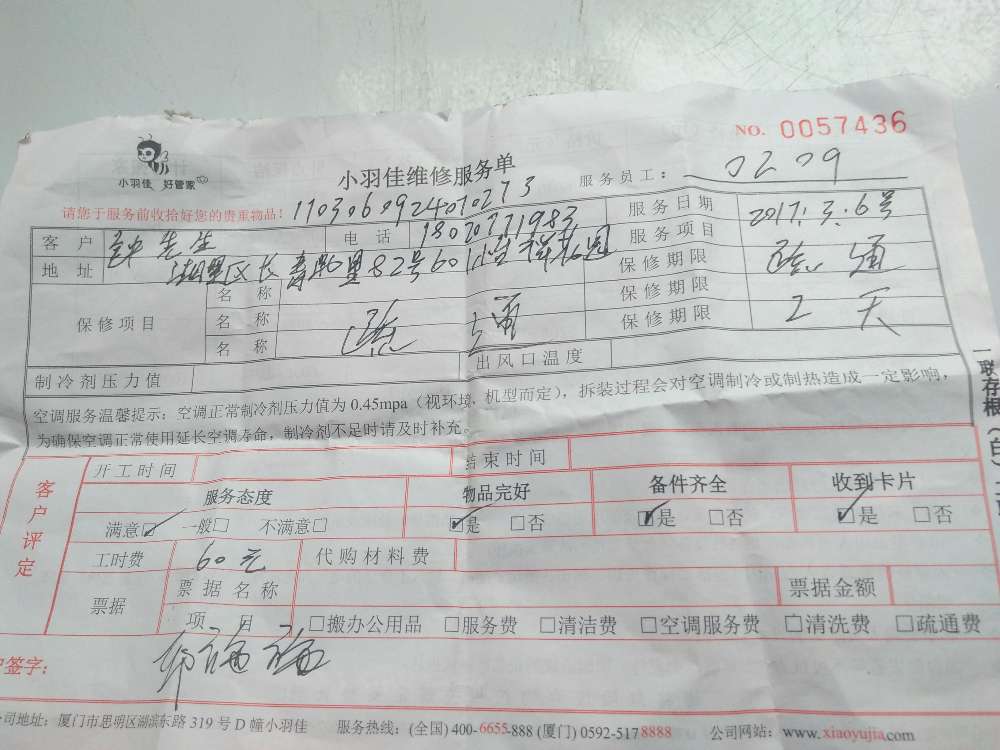 NO. 0057436
小羽佳 好管家
小羽佳维修服务单
服务员工: 0209
请您于服务前收拾好您的贵重物品!
客户 先生 电话 18020771983 服务日期 2017.3.6号
地址 湖里区长 里82号601 花园 服务项目 疏通
保修项目 名称 保修期限
名称 疏通 保修期限
名称 保修期限 2天
制冷剂压力值 出风口温度
空调服务温馨提示:空调正常制冷剂压力值为0.45mpa(视环境、机型而定),拆装过程会对空调制冷或制热造成一定影响,
为确保空调正常使用延长空调寿命,制冷剂不足时请及时补充。
一联存根(白)
客户评定
开工时间 结束时间
服务态度 物品完好 备件齐全 收到卡片
满意☑ 一般□ 不满意□ ☑是 □否 ☑是 □否 ☑是 □否
工时费 60元 代购材料费
票据 票据名称 票据金额
项目 □搬办公用品 □服务费 □清洁费 □空调服务费 □清洗费 □疏通费
签字:
司地址:厦门市思明区湖滨东路319号D幢小羽佳 服务热线:(全国)400-6655-888 (厦门)0592-5178888 公司网站:www.xiaoyujia.com